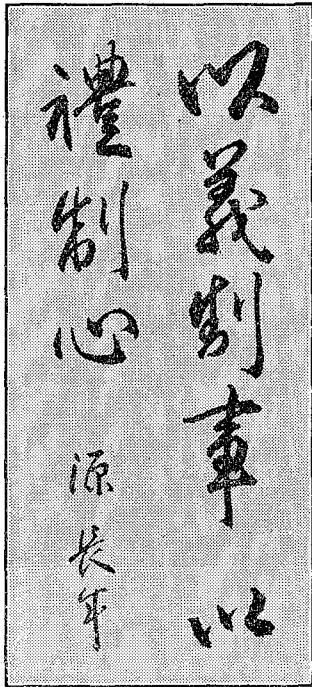 以義制事以
禮制心 源長年